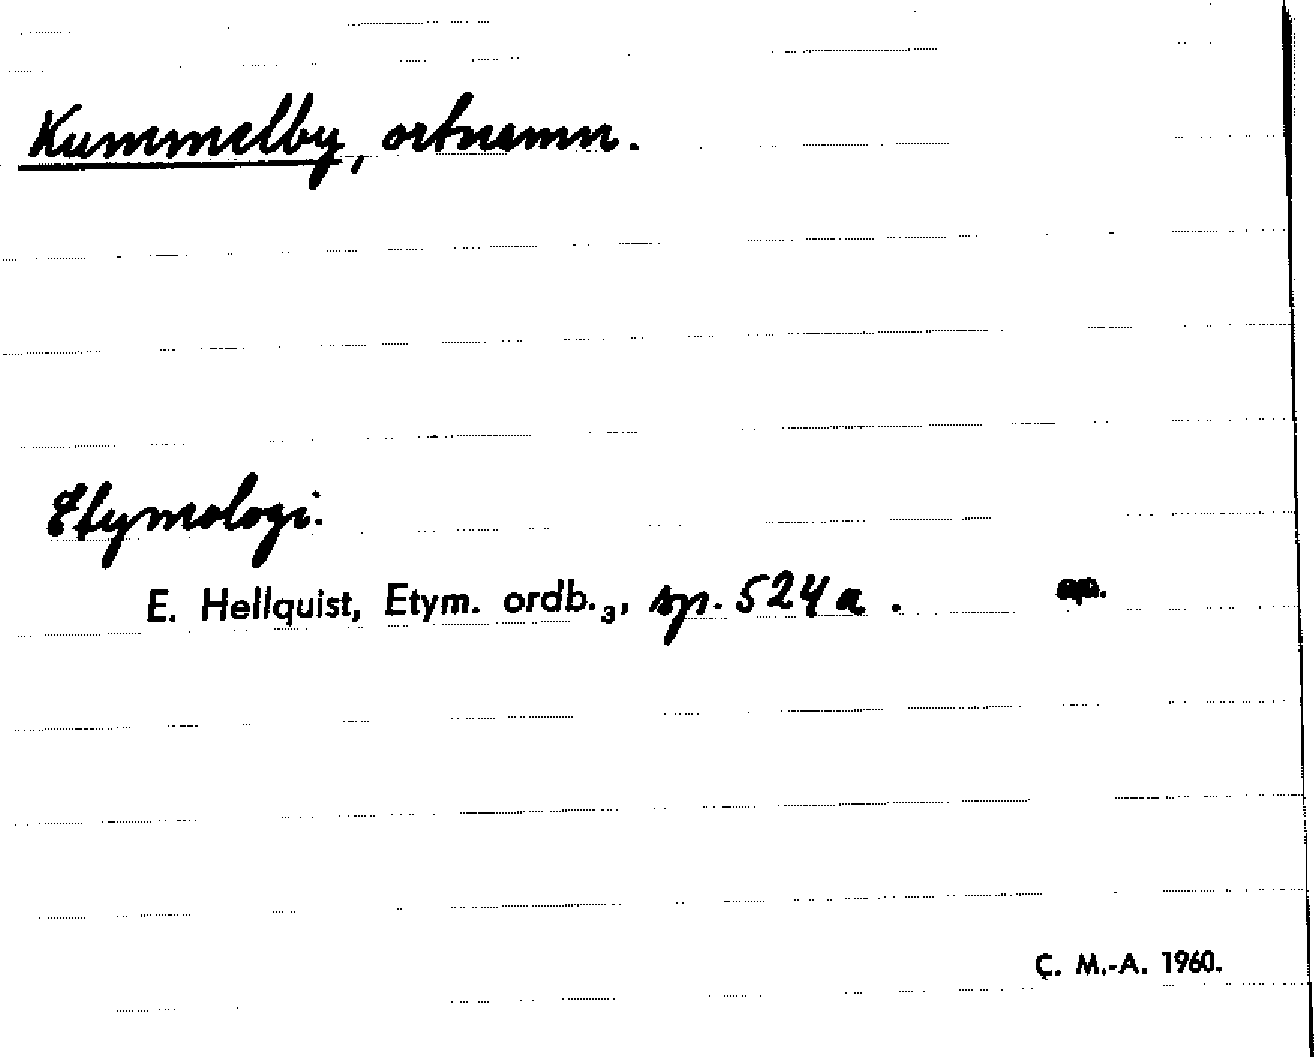 Kummelby, ortnamn.
Etymologi.
E. Hellquist, Etym. ordb.₃, sp. 524 a .
C. M.-A. 1960.